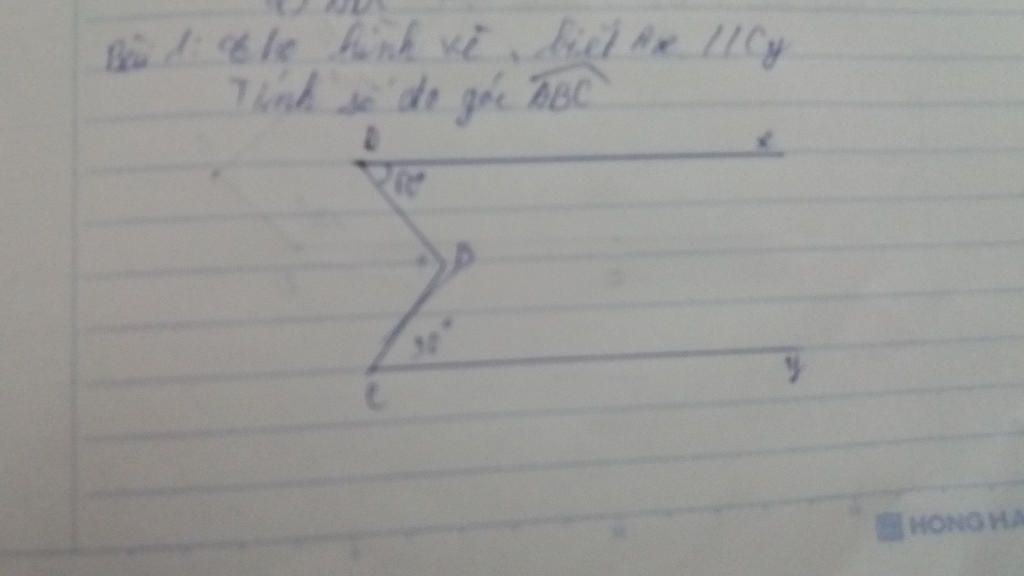 Bài 1: Cho hình vẽ, biết Ax // Cy
Tính số đo góc ABC
x
B
30°
C
y
HONG HA